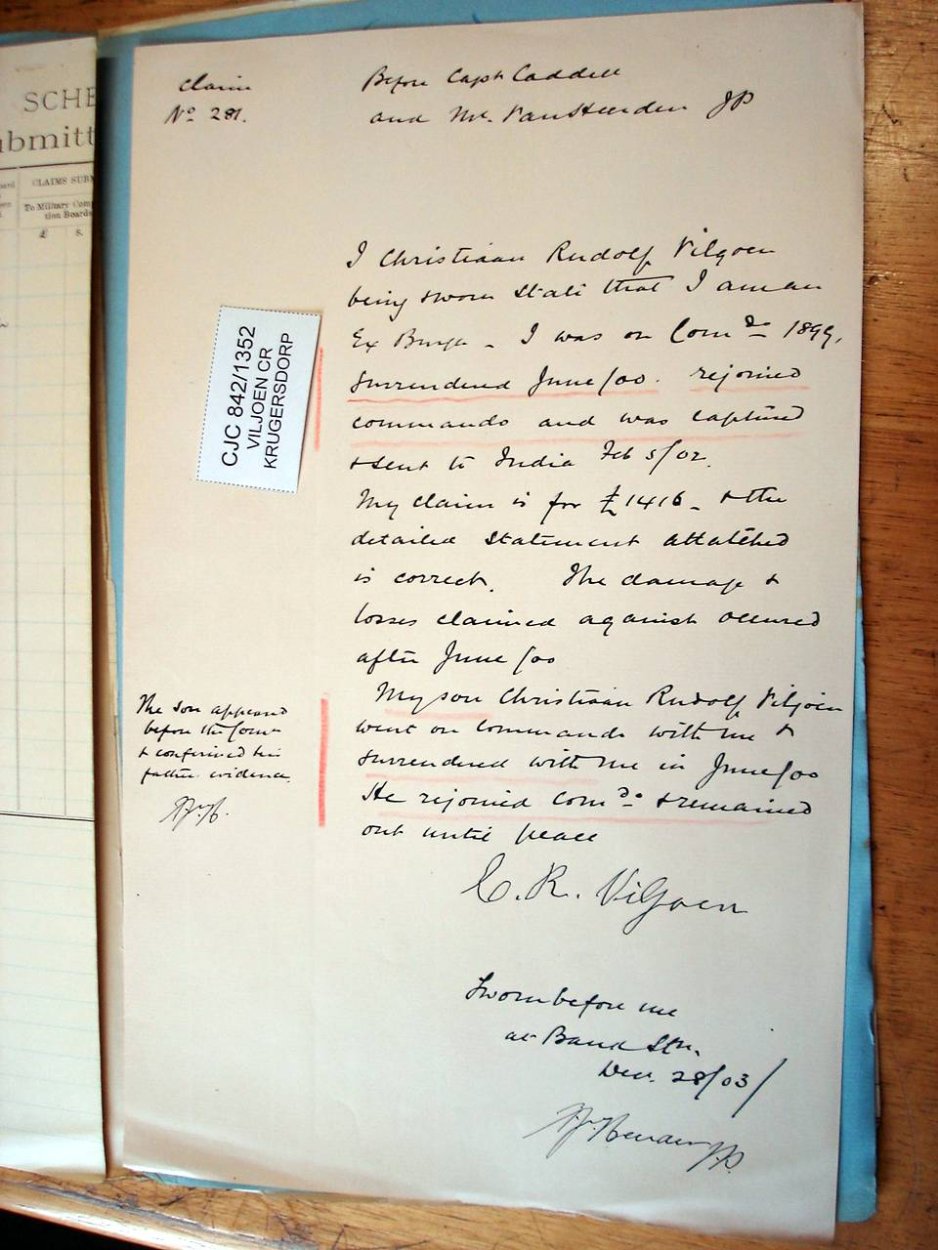 SCHE
ubmitt
CLAIMS SUB
To Military Com
tion Boards
£ s.
Claim
No 281.
Before Capt Caddell
and Mr. VanHeerden JP
CJC 842/1352
VILJOEN CR
KRUGERSDORP
I Christiaan Rudolf Viljoen
being sworn state that I am an
Ex Burgr - I was on Comdo 1899,
surrendered June/00. rejoined
commando and was captured
& sent to India Feb 5/02.
My claim is for £1416 - & the
detailed statement attatched
is correct. The damage &
losses claimed against occured
after June/00
My son Christiaan Rudolf Viljoen
went on commando with me &
surrendered with me in June/00
He rejoined Comdo. & remained
out until peace
The son appeared
before the Comn
& confirmed his
father evidence.
C. R. Viljoen
Sworn before me
at Bank Stn.
Dec. 28/03/
JP